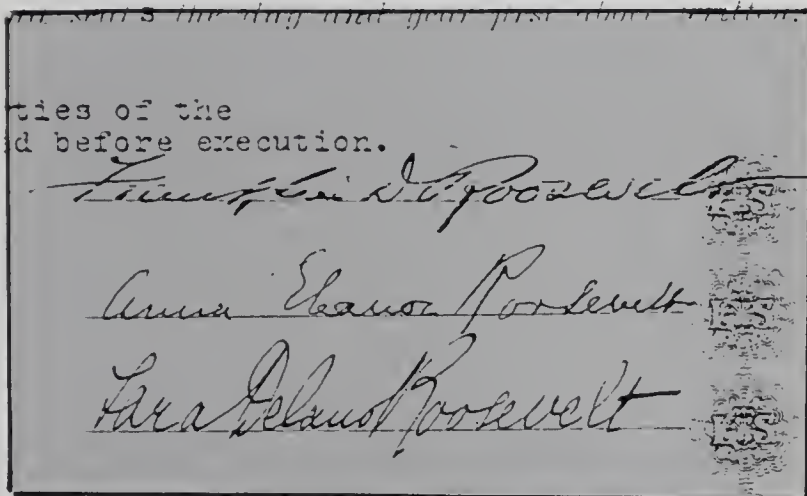 seals the day and year first above written.
ties of the
d before execution.
Franklin D Roosevelt
Anna Eleanor Roosevelt
Sara Delano Roosevelt